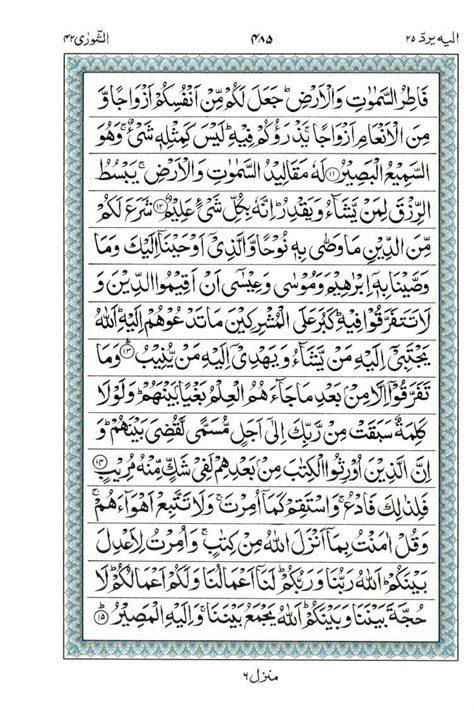 الیه یردّ ۲۵
۴۸۵
الشّورٰی ۴۲
فَاطِرُ السَّمٰوٰتِ وَالْاَرْضِ ؕ جَعَلَ لَكُمْ مِّنْ اَنْفُسِكُمْ اَزْوَاجًا وَّ
مِنَ الْاَنْعَامِ اَزْوَاجًا ۚ یَذْرَؤُكُمْ فِیْهِ ؕ لَیْسَ كَمِثْلِهٖ شَیْءٌ ۚ وَهُوَ
السَّمِیْعُ الْبَصِیْرُ ﴿۱۱﴾ لَهٗ مَقَالِیْدُ السَّمٰوٰتِ وَالْاَرْضِ ۚ یَبْسُطُ
الرِّزْقَ لِمَنْ یَّشَآءُ وَیَقْدِرُ ؕ اِنَّهٗ بِكُلِّ شَیْءٍ عَلِیْمٌ ﴿۱۲﴾ شَرَعَ لَكُمْ
مِّنَ الدِّیْنِ مَا وَصّٰی بِهٖ نُوْحًا وَّالَّذِیْۤ اَوْحَیْنَاۤ اِلَیْكَ وَمَا
وَصَّیْنَا بِهٖۤ اِبْرٰهِیْمَ وَمُوْسٰی وَعِیْسٰۤی اَنْ اَقِیْمُوا الدِّیْنَ وَ
لَا تَتَفَرَّقُوْا فِیْهِ ؕ كَبُرَ عَلَی الْمُشْرِكِیْنَ مَا تَدْعُوْهُمْ اِلَیْهِ ؕ اَللّٰهُ
یَجْتَبِیْۤ اِلَیْهِ مَنْ یَّشَآءُ وَیَهْدِیْۤ اِلَیْهِ مَنْ یُّنِیْبُ ﴿۱۳﴾ وَمَا
تَفَرَّقُوْۤا اِلَّا مِنْۢ بَعْدِ مَا جَآءَهُمُ الْعِلْمُ بَغْیًۢا بَیْنَهُمْ ؕ وَلَوْلَا
كَلِمَةٌ سَبَقَتْ مِنْ رَّبِّكَ اِلٰۤی اَجَلٍ مُّسَمًّی لَّقُضِیَ بَیْنَهُمْ ؕ وَ
اِنَّ الَّذِیْنَ اُوْرِثُوا الْكِتٰبَ مِنْۢ بَعْدِهِمْ لَفِیْ شَكٍّ مِّنْهُ مُرِیْبٍ ﴿۱۴﴾
فَلِذٰلِكَ فَادْعُ ۚ وَاسْتَقِمْ كَمَاۤ اُمِرْتَ ۚ وَلَا تَتَّبِعْ اَهْوَآءَهُمْ ۚ
وَقُلْ اٰمَنْتُ بِمَاۤ اَنْزَلَ اللّٰهُ مِنْ كِتٰبٍ ۚ وَاُمِرْتُ لِاَعْدِلَ
بَیْنَكُمْ ؕ اَللّٰهُ رَبُّنَا وَرَبُّكُمْ ؕ لَنَاۤ اَعْمَالُنَا وَلَكُمْ اَعْمَالُكُمْ ؕ لَا
حُجَّةَ بَیْنَنَا وَبَیْنَكُمْ ؕ اَللّٰهُ یَجْمَعُ بَیْنَنَا ۚ وَاِلَیْهِ الْمَصِیْرُ ﴿۱۵﴾
منزل ۶